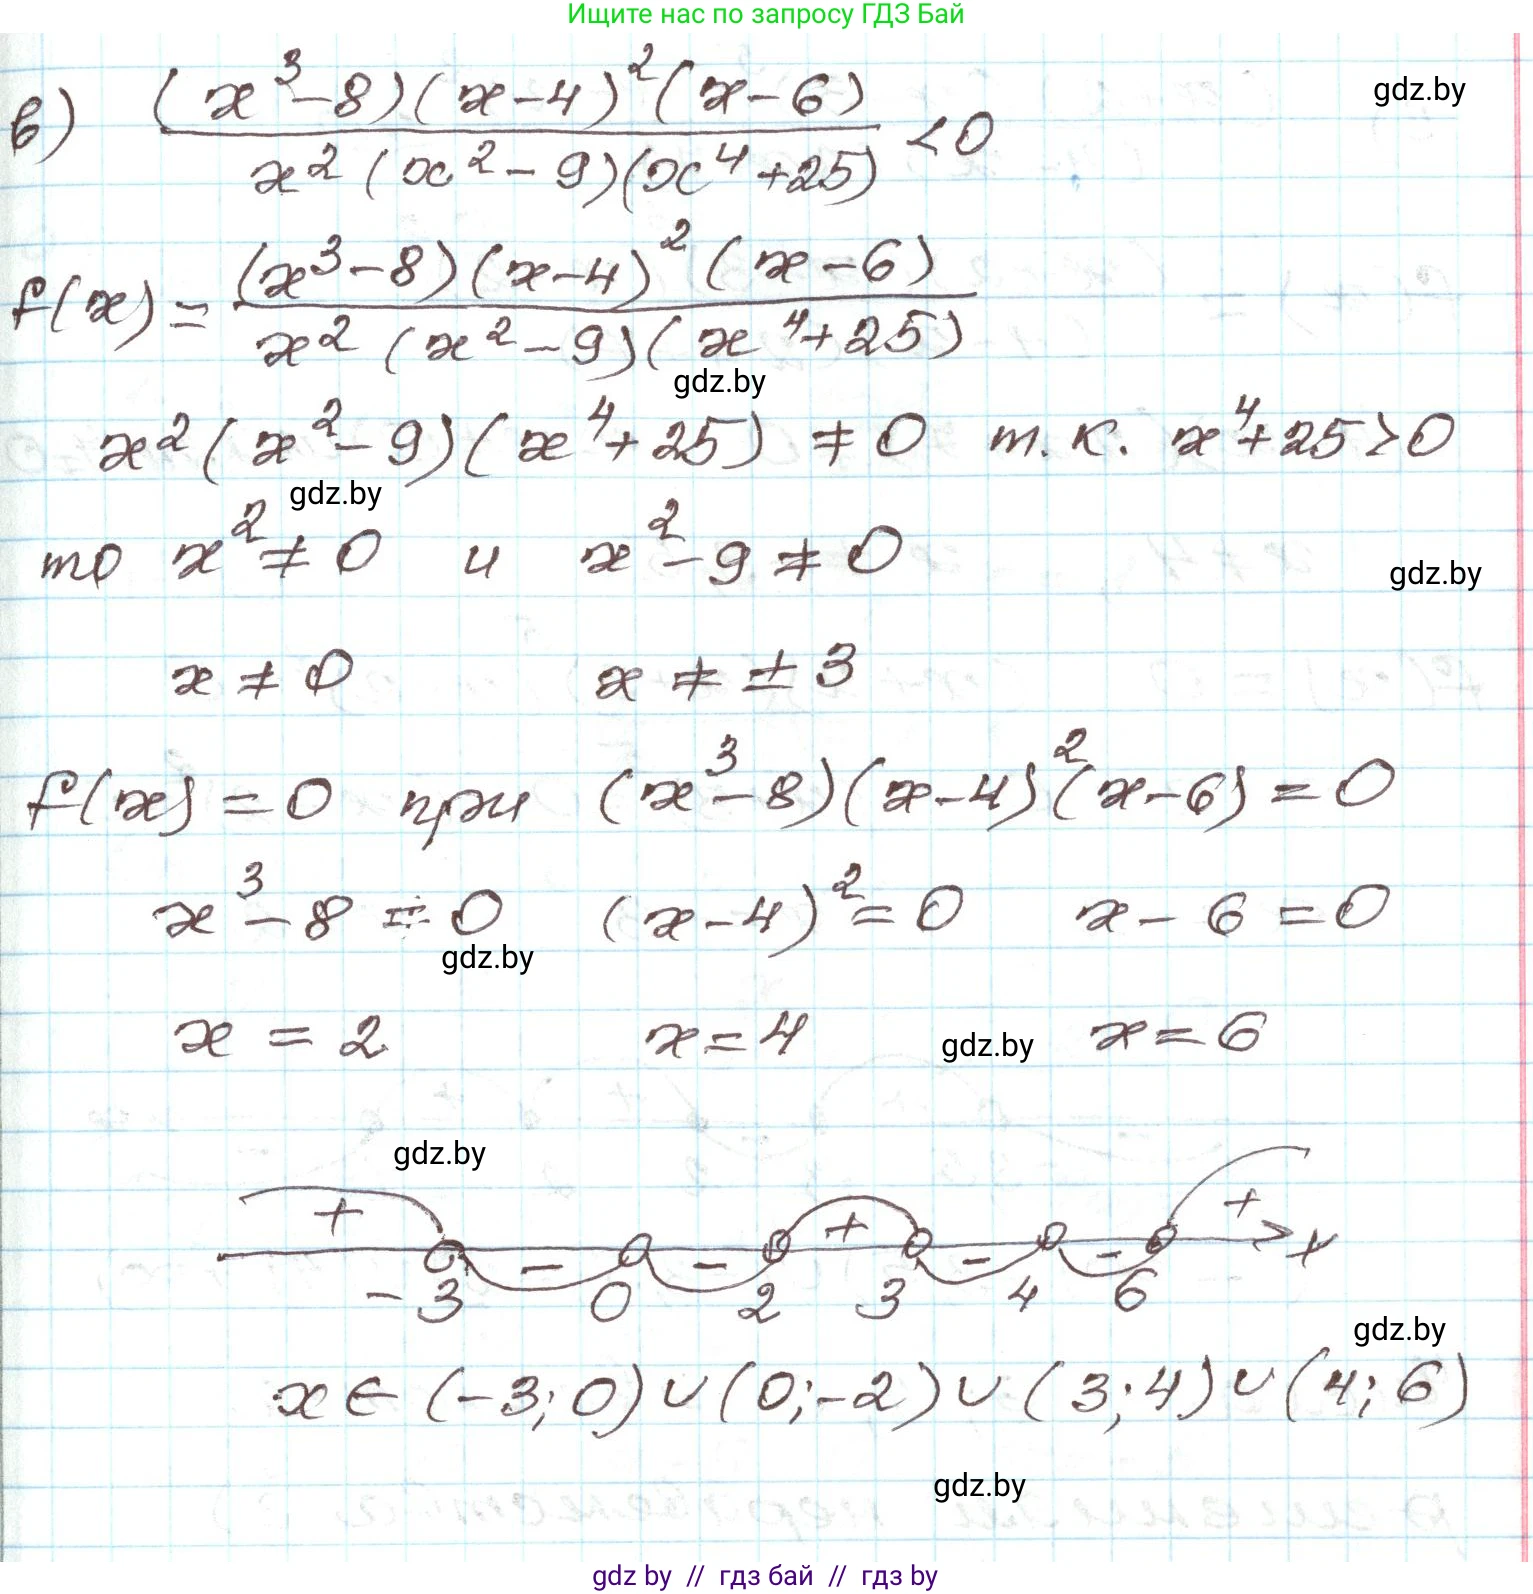 Ищите нас по запросу ГДЗ Бай
в) (x³-8)(x-4)²(x-6) / x²(x²-9)(x⁴+25) < 0
gdz.by
f(x) = (x³-8)(x-4)²(x-6) / x²(x²-9)(x⁴+25)
gdz.by
x²(x²-9)(x⁴+25) ≠ 0 т.к. x⁴+25>0
gdz.by
то x² ≠ 0 и x²-9 ≠ 0
gdz.by
x ≠ 0 x ≠ ±3
f(x) = 0 при (x³-8)(x-4)²(x-6) = 0
x³-8 = 0 (x-4)² = 0 x-6 = 0
gdz.by
x = 2 x = 4 gdz.by x = 6
gdz.by
+ - - + - - + x
-3 0 2 3 4 6
gdz.by
x ∈ (-3; 0) ∪ (0; -2) ∪ (3; 4) ∪ (4; 6)
gdz.by
gdz by // гдз бай // гдз by